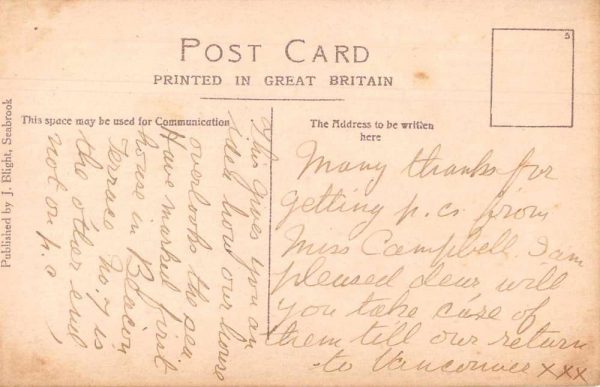 POST CARD
PRINTED IN GREAT BRITAIN
5
This space may be used for Communication
The Address to be written
here
Published by J. Blight, Seabrook
This gives you an
idea how our house
overlooks the sea.
Have marked first
house in Beacon
Terrace No. 7 is
the other end,
not on p.c
Many thanks for
getting p.cs from
Miss Campbell. I am
pleased dear will
you take care of
them till our return
to Vancouver xxx